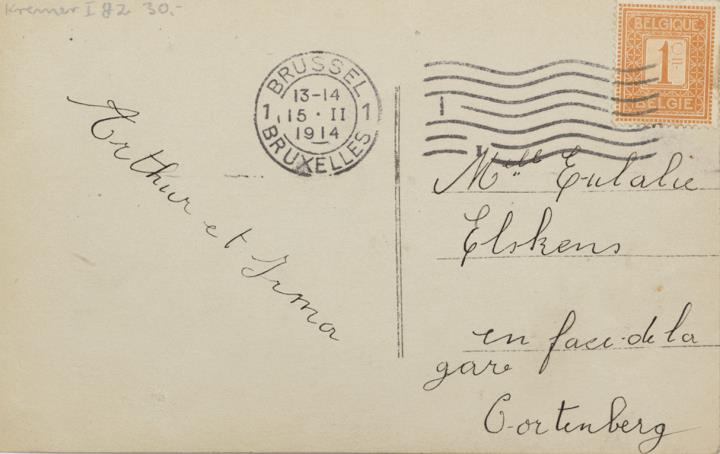 Kremer I 82 30.-
BRUSSEL
13-14
1 15 · II 1
1914
BRUXELLES
BELGIQUE
1 c
BELGIE
Arthur et Irma
Melle Eulalie
Elskens
en face de la
gare
Cortenberg